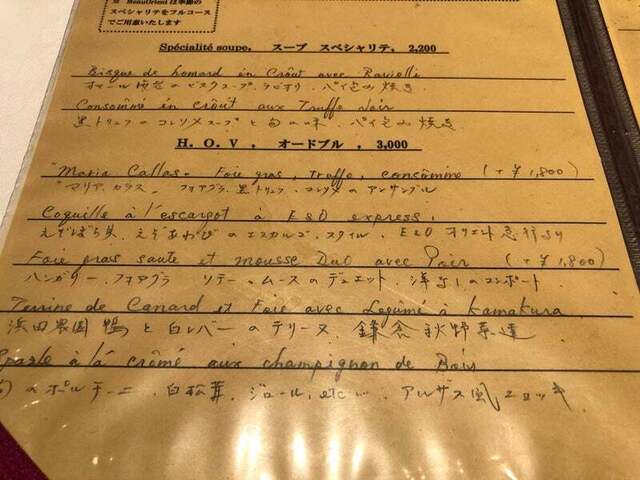 ※ BeauOrientは季節の
スペシャリテをフルコース
でご用意いたします
Spécialité soupe. スープ スペシャリテ. 2,200
Bisque de homard en Croût avec Raviolle
オマール海老のビスクスープ、ラビオリ、パイ包み焼き
Consommé en croût aux Truffe noir
黒トリュフのコンソメスープと旬の味、パイ包み焼き
H. O. V. オードブル. 3,000
"Maria Callas" Foie gras, Truffe, consomme (+¥1,800)
"マリア、カラス" フォアグラ、黒トリュフ、コンソメのアンサンブル
Coquille à l'escargot à E&O express.
えぞあわびのエスカルゴ、スタイル、E&O オリエント急行より
Foie gras saute et mousse DuO avec Poir (+¥1,800)
ハンガリー、フォアグラ ソテームースのデュエット、洋なしのコンポート
Terrine de Canard et Foie avec Legume à Kamakura
浜田農園 鴨と白レバーのテリーヌ 鎌倉 秋野菜達
à la crôme aux champignon de Bois
のポルチーニ、白松茸、ジロール,etc... アルザス風ニョッキ